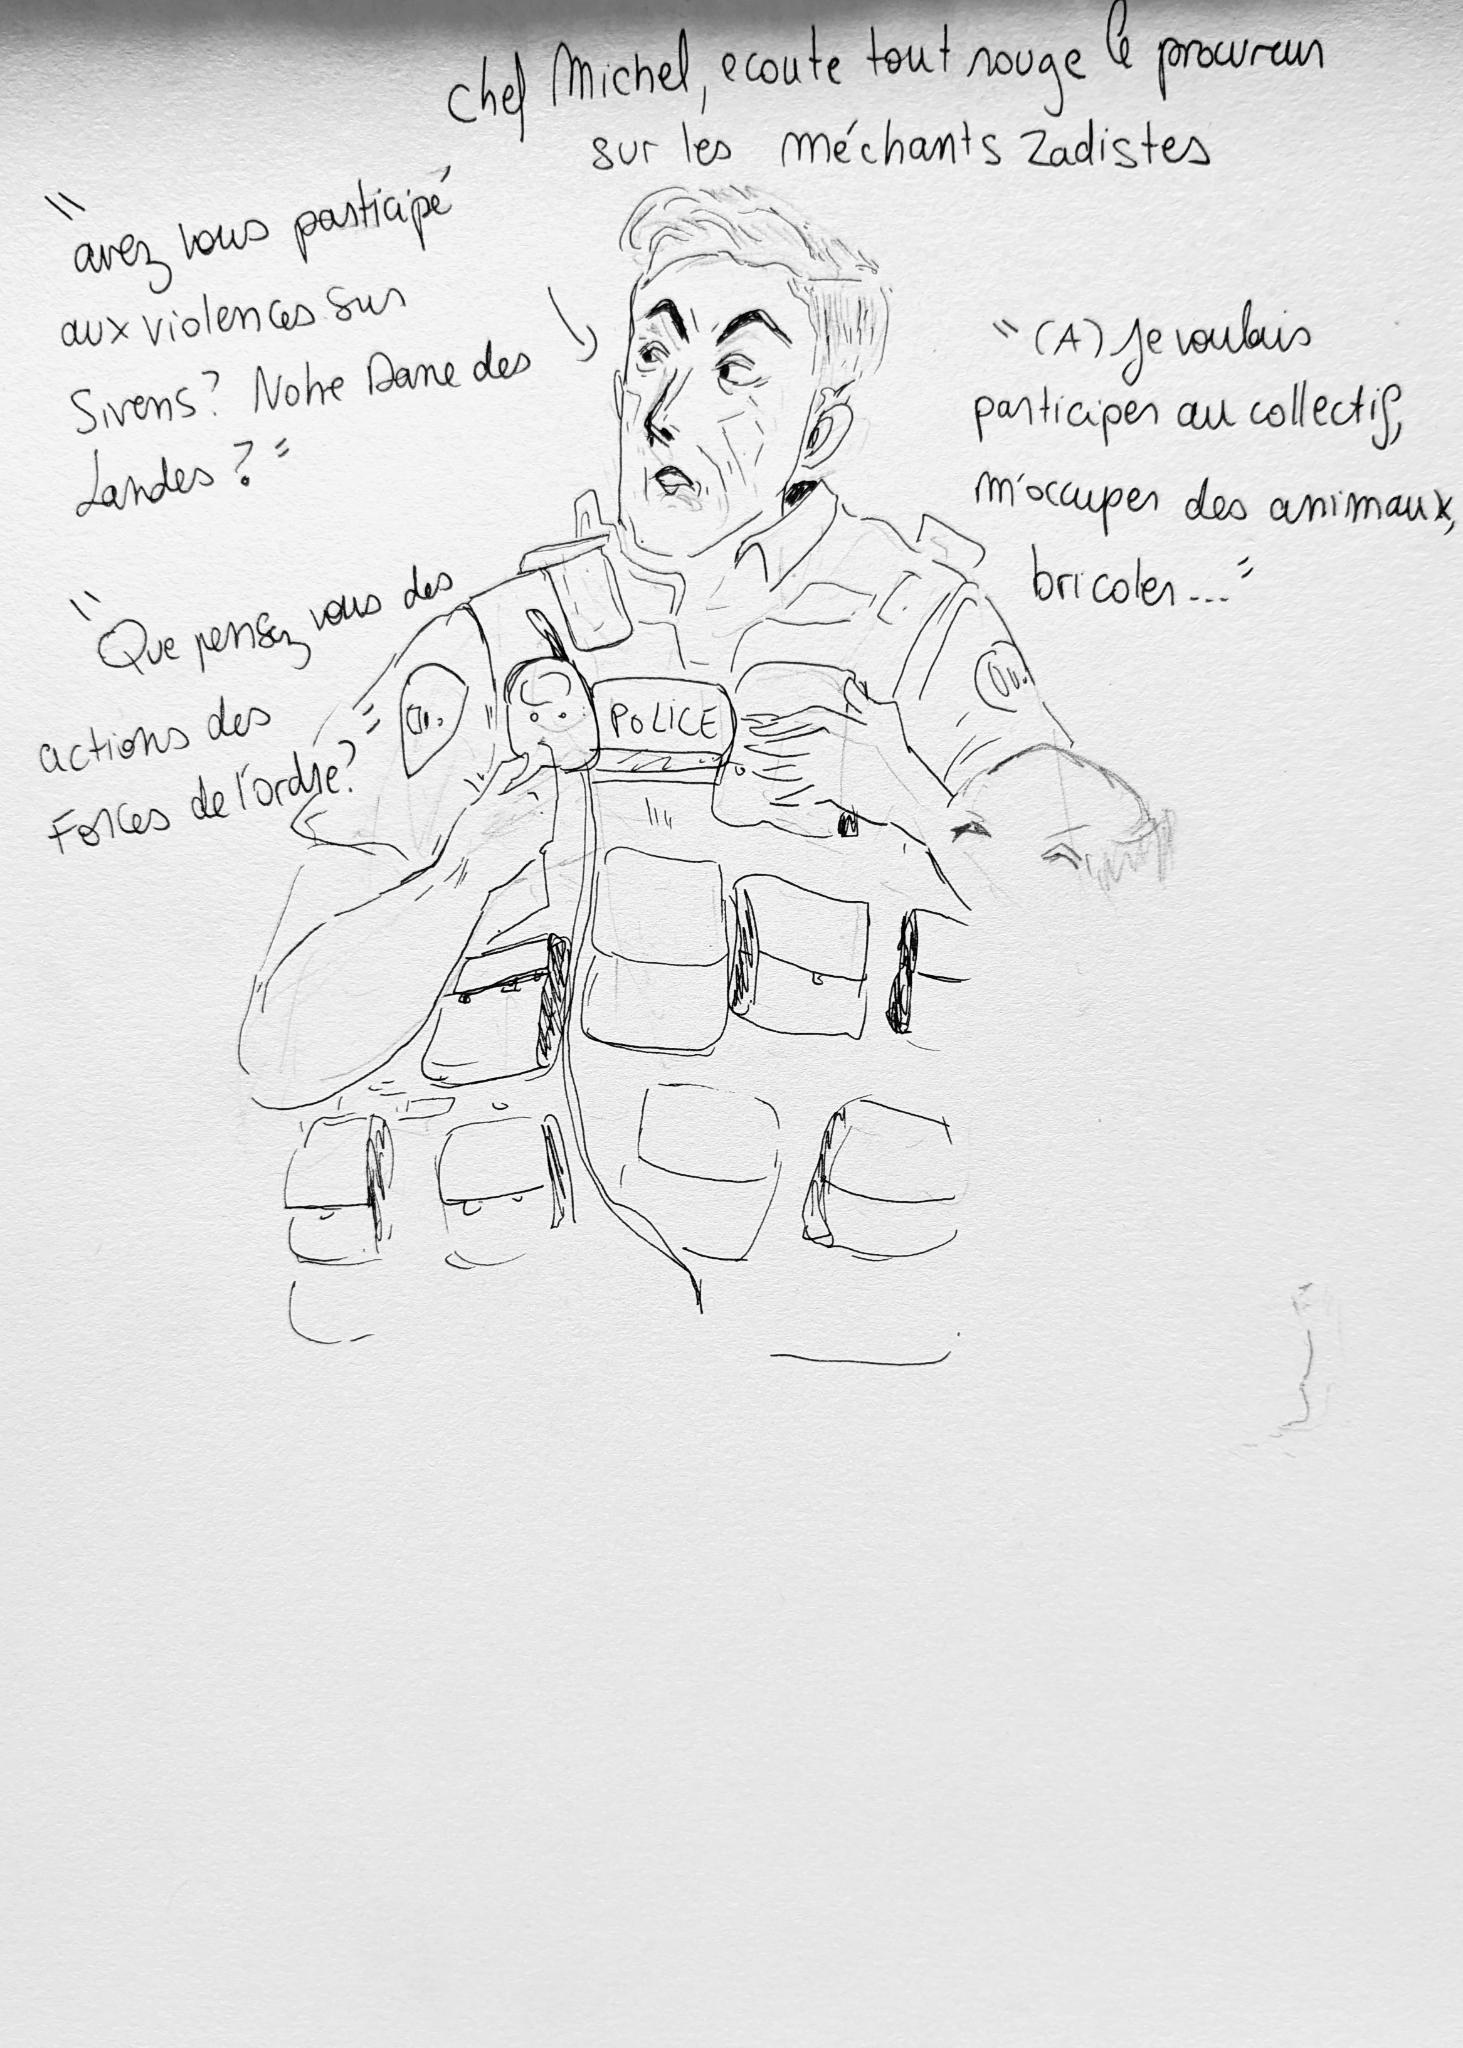 chef Michel, ecoute tout rouge le procureur
sur les méchants zadistes
"avez vous participé
aux violences sur
Sivens? Notre Dame des
Landes?"
"(A) Je voulais
participer au collectif,
m'occuper des animaux,
bricoler..."
"Que pensez vous des
actions des
Forces de l'ordre?"
POLICE